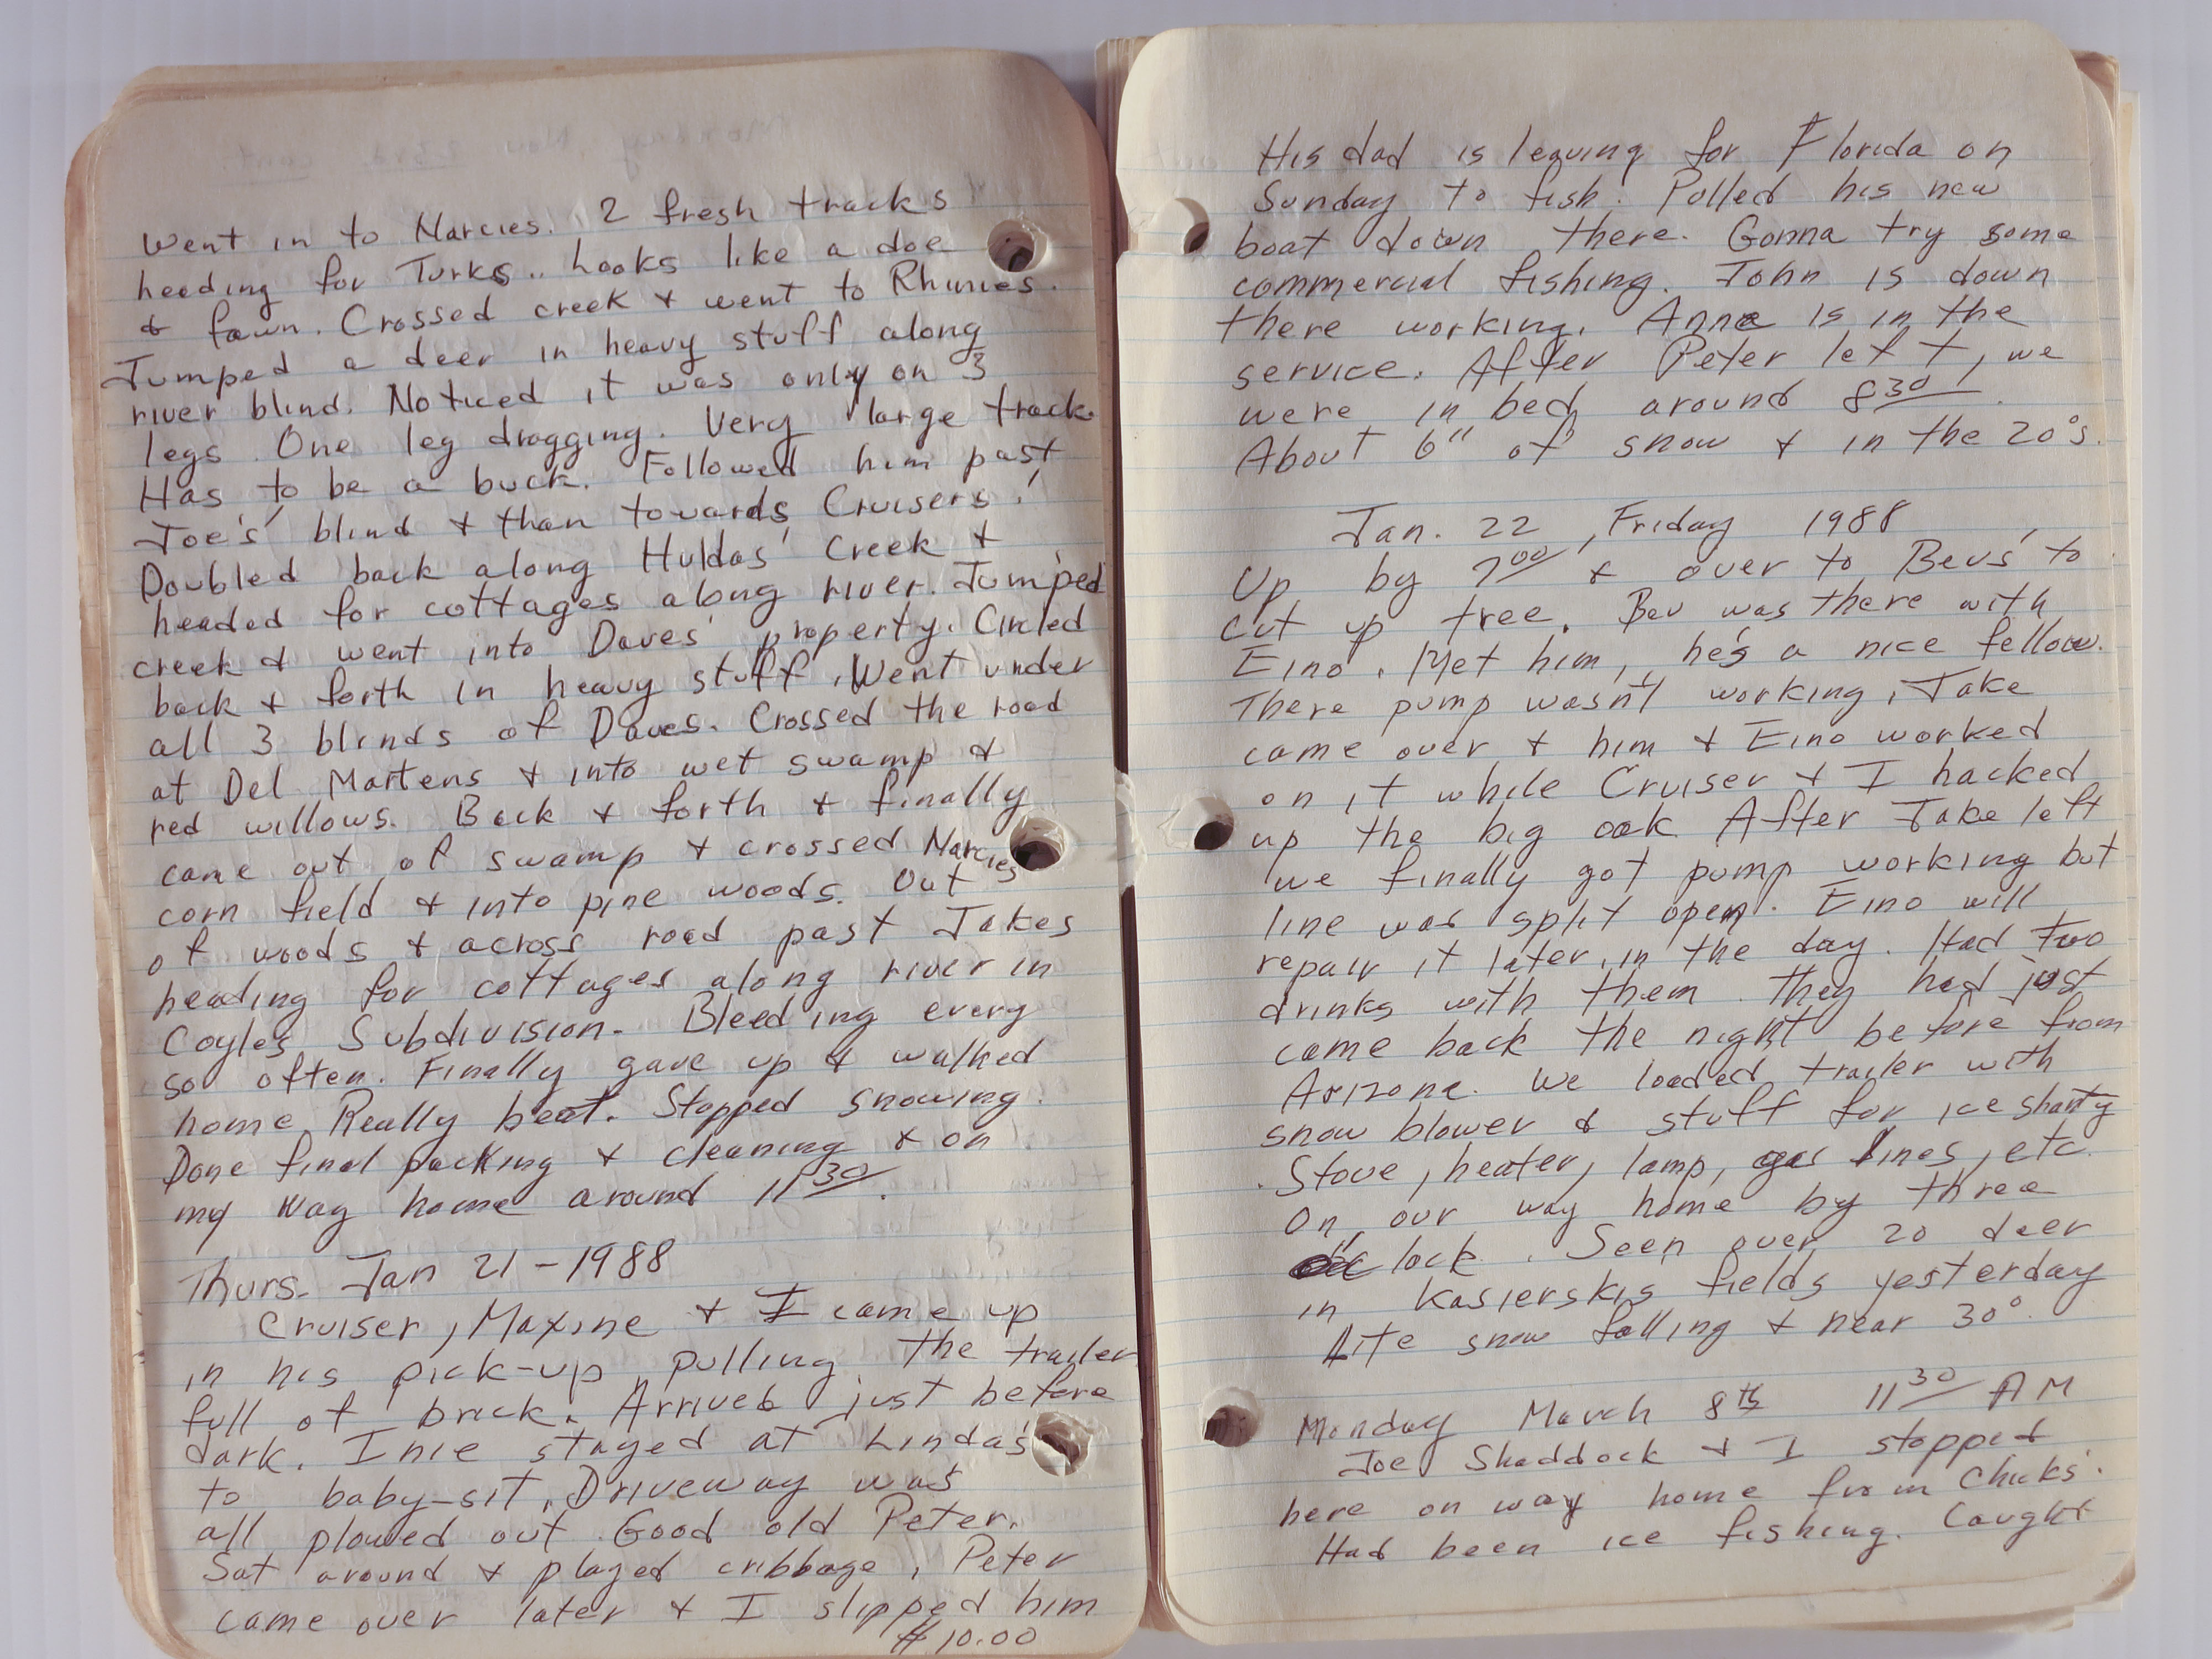 Went in to Narcies. 2 fresh tracks
heeding for Turks.. Looks like a doe
& fawn. Crossed creek & went to Rhunies.
Jumped a deer in heavy stuff along
river blind. Noticed it was only on 3
legs. One leg dragging. Very large track.
Has to be a buck. Followed him past
Joe's' blind & than towards Cruisers!
Doubled back along Huldas' Creek &
headed for cottages along river. Jumped
creek & went into Daves' property. Circled
back & forth in heavy stuff. Went under
all 3 blinds of Daves. Crossed the road
at Del Martens & into wet swamp &
red willows. Back & forth & finally
came out of swamp & crossed Narcies
corn field & into pine woods. Out
of woods & across road past Jakes
heading for cottages along river in
Coyles Subdivision. Bleeding every
so often. Finally gave up & walked
home. Really beat. Stopped snowing.
Done final packing & cleaning & on
my way home around 11 30.
Thurs. Jan 21-1988
Cruiser, Maxine & I came up
in his pick-up pulling the trailer
full of brick. Arrived just before
dark. Inie stayed at Linda's
to baby-sit. Driveway was
all plowed out. Good old Peter.
Sat around & played cribbage. Peter
came over later & I slipped him
$10.00
His dad is leaving for Florida on
Sunday to fish. Pulled his new
boat down there. Gonna try some
commercial fishing. John is down
there working. Anna is in the
service. After Peter left, we
were in bed around 8 30.
About 6" of snow & in the 20°s.
Jan. 22, Friday 1988
Up by 7 00 & over to Bevs' to
cut up tree. Bev was there with
Eino. Met him, he's a nice fellow.
There pump wasn't working. Jake
came over & him & Eino worked
on it while Cruiser & I hacked
up the big oak. After Jake left
we finally got pump working but
line was split open. Eino will
repair it later in the day. Had two
drinks with them. They had just
came back the night before from
Arizona. We loaded trailer with
snow blower & stuff for ice shanty
. Stove, heater, lamp, gas lines, etc.
On our way home by three
o'clock. Seen over 20 deer
in Kasierskis fields yesterday
Lite snow falling & near 30°.
Monday March 8th 11 30 AM
Joe Shaddock & I stopped
here on way home from Chuks'.
Had been ice fishing. Caught